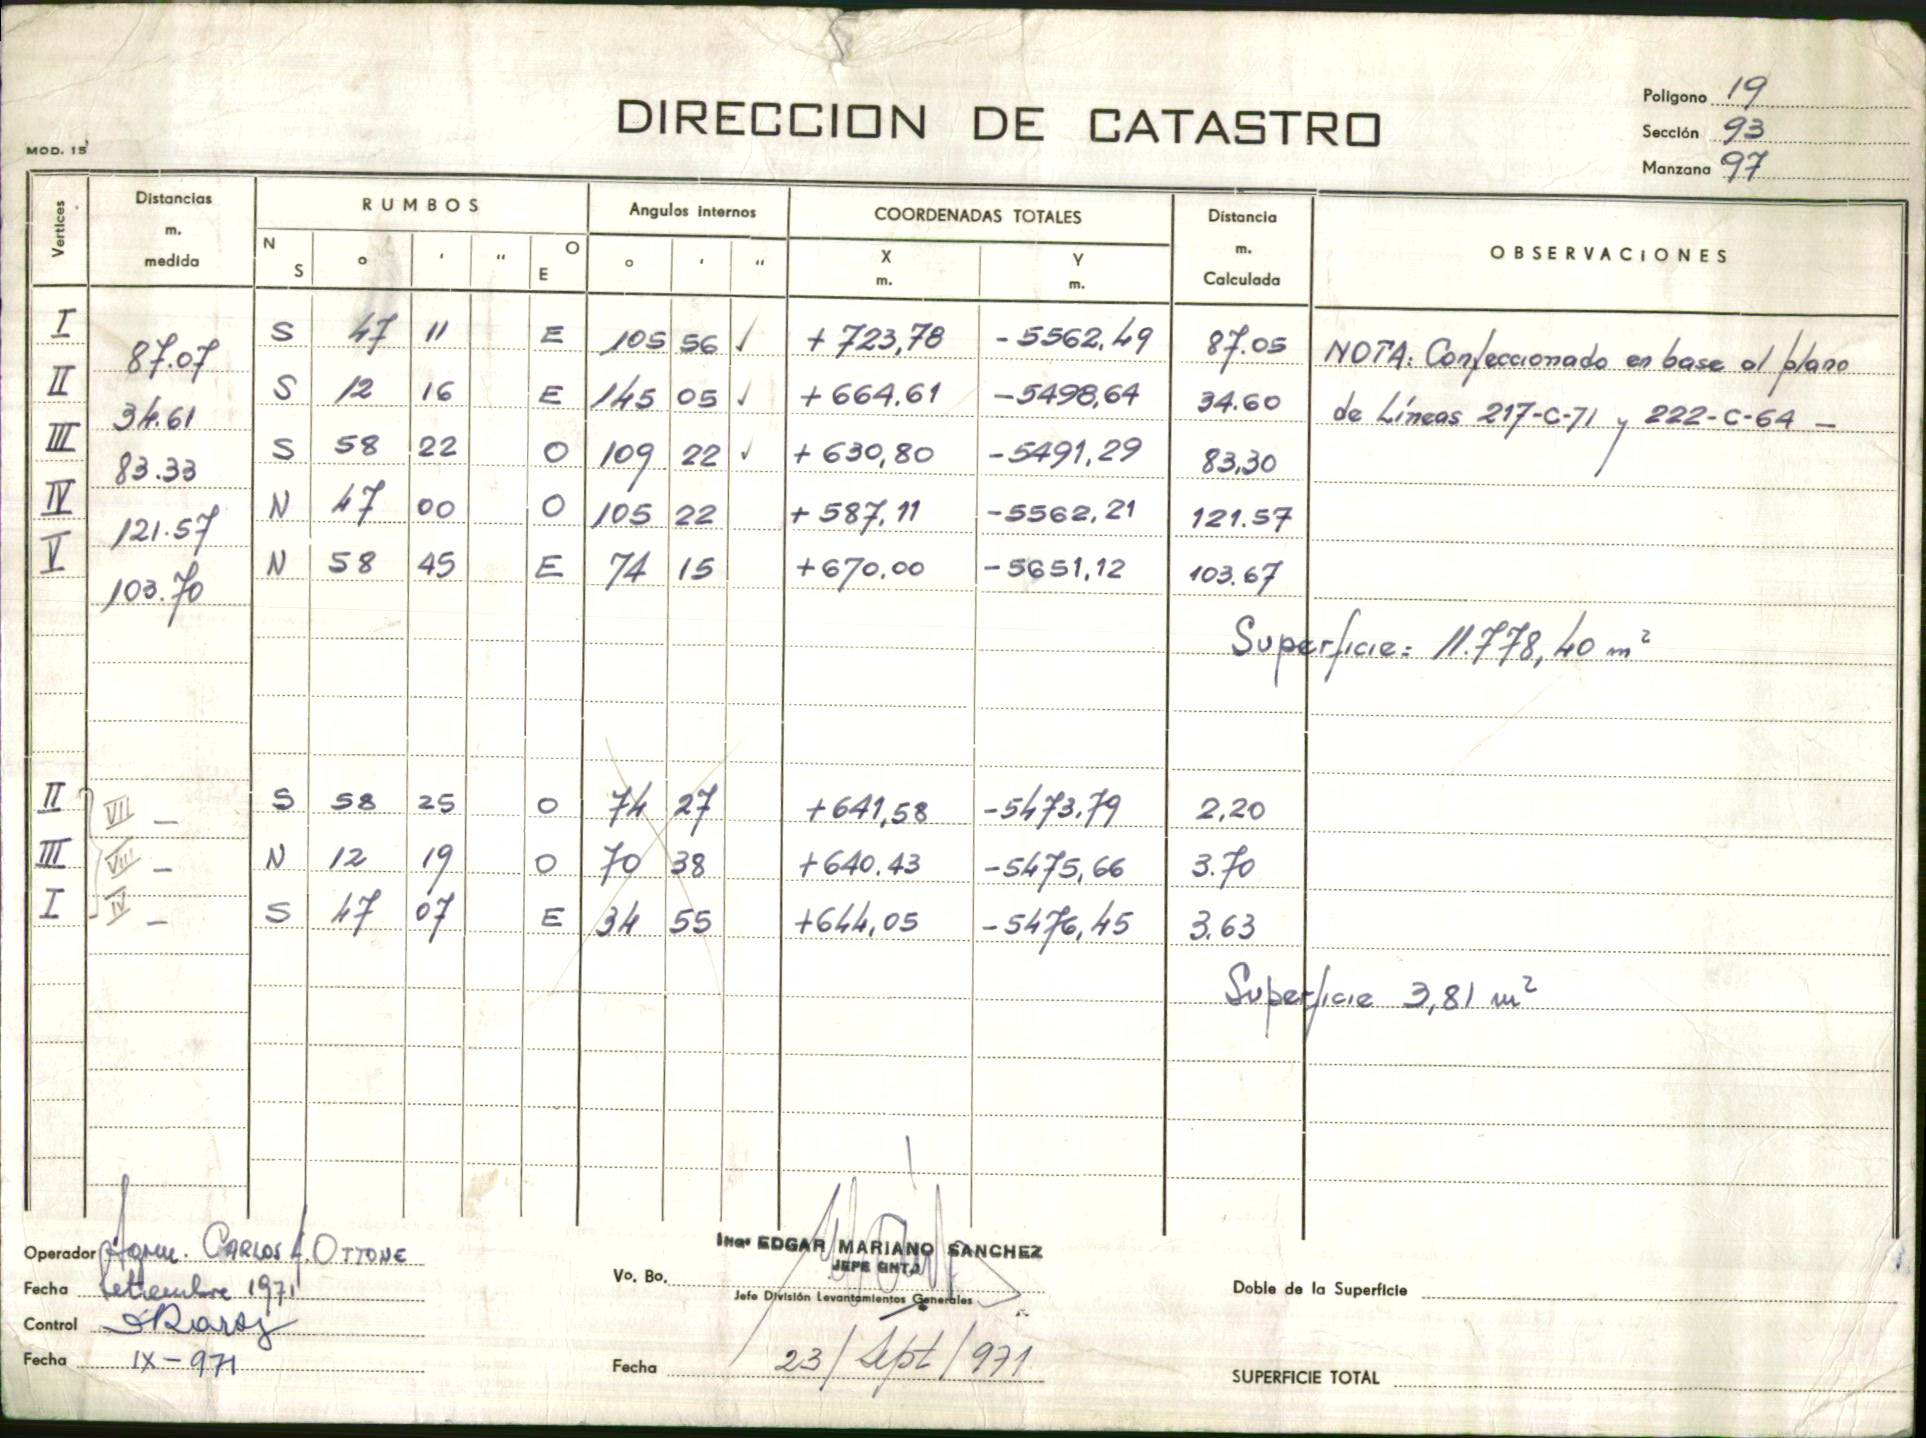 DIRECCION DE CATASTRO
Poligono 19
Sección 93
Manzana 97
MOD. 15
Vertices
Distancias m. medida
RUMBOS
Angulos internos
COORDENADAS TOTALES
Distancia m. Calculada
OBSERVACIONES
N S ° ' " O E
° ' "
X m. Y m.
I 87.07 S 47 11 E 105 56 ✓ +723,78 -5562,49 87.05
NOTA: Confeccionado en base al plano
II 34.61 S 12 16 E 145 05 ✓ +664.61 -5498,64 34.60
de Líneas 217-C-71 y 222-C-64 —
III 83.33 S 58 22 O 109 22 ✓ +630,80 -5491,29 83,30
IV 121.57 N 47 00 O 105 22 +587,11 -5562,21 121.57
V 103.70 N 58 45 E 74 15 +670,00 -5651,12 103.67
Superficie: 11.778,40 m²
II VII — S 58 25 O 74 27 +641,58 -5473.79 2,20
III VIII — N 12 19 O 70 38 +640.43 -5475,66 3.70
I IV — S 47 07 E 34 55 +644,05 -5476,45 3.63
Superficie 3,81 m²
Operador Agrim. CARLOS A. OTTONE
Fecha Setiembre 1971
Control
Fecha IX-971
Ingº EDGAR MARIANO SANCHEZ
Vo. Bo.
Jefe División Levantamientos Generales
Fecha 23/Sept/971
Doble de la Superficie
SUPERFICIE TOTAL